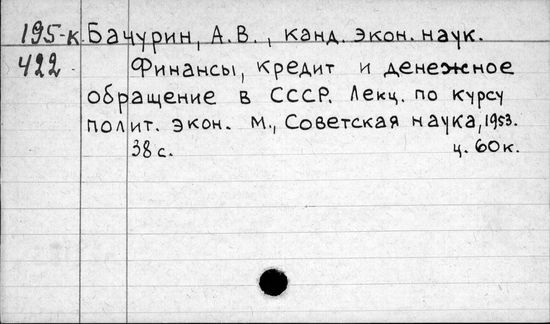 195-к Бачурин, А.В., канд. экон. наук.
422 Финансы, кредит и денежное
обращение в СССР. Лекц. по курсу
полит. экон. М., Советская наука, 1953.
38 с. ц. 60 к.